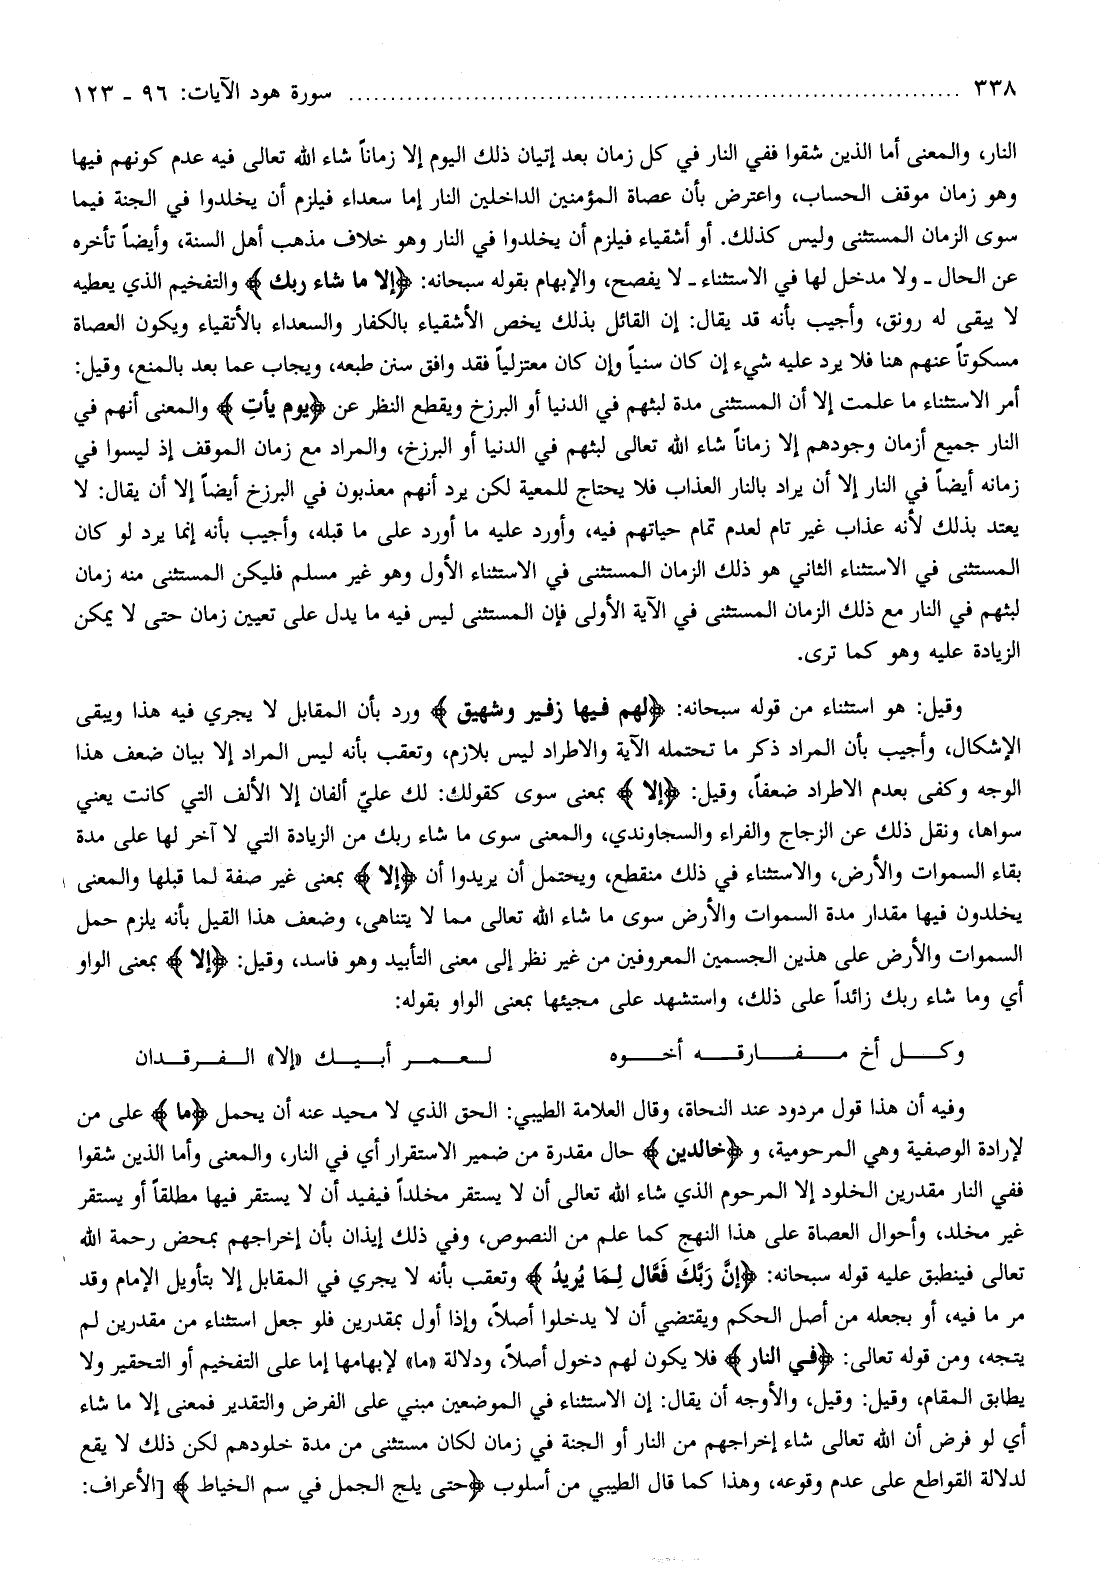 ٣٣٨ ........................................................................ سورة هود الآيات: ٩٦ ـ ١٢٣
النار، والمعنى أما الذين شقوا ففي النار في كل زمان بعد إتيان ذلك اليوم إلا زماناً شاء الله تعالى فيه عدم كونهم فيها
وهو زمان موقف الحساب، واعترض بأن عصاة المؤمنين الداخلين النار إما سعداء فيلزم أن يخلدوا في الجنة فيما
سوى الزمان المستثنى وليس كذلك. أو أشقياء فيلزم أن يخلدوا في النار وهو خلاف مذهب أهل السنة، وأيضاً تأخره
عن الحال ـ ولا مدخل لها في الاستثناء ـ لا يفصح، والإبهام بقوله سبحانه: ﴿إلا ما شاء ربك﴾ والتفخيم الذي يعطيه
لا يبقى له رونق، وأجيب بأنه قد يقال: إن القائل بذلك يخص الأشقياء بالكفار والسعداء بالأتقياء ويكون العصاة
مسكوتاً عنهم هنا فلا يرد عليه شيء إن كان سنياً وإن كان معتزلياً فقد وافق سنن طبعه، ويجاب عما بعد بالمنع، وقيل:
أمر الاستثناء ما علمت إلا أن المستثنى مدة لبثهم في الدنيا أو البرزخ ويقطع النظر عن ﴿يوم يأتِ﴾ والمعنى أنهم في
النار جميع أزمان وجودهم إلا زماناً شاء الله تعالى لبثهم في الدنيا أو البرزخ، والمراد مع زمان الموقف إذ ليسوا في
زمانه أيضاً في النار إلا أن يراد بالنار العذاب فلا يحتاج للمعية لكن يرد أنهم معذبون في البرزخ أيضاً إلا أن يقال: لا
يعتد بذلك لأنه عذاب غير تام لعدم تمام حياتهم فيه، وأورد عليه ما أورد على ما قبله، وأجيب بأنه إنما يرد لو كان
المستثنى في الاستثناء الثاني هو ذلك الزمان المستثنى في الاستثناء الأول وهو غير مسلم فليكن المستثنى منه زمان
لبثهم في النار مع ذلك الزمان المستثنى في الآية الأولى فإن المستثنى ليس فيه ما يدل على تعيين زمان حتى لا يمكن
الزيادة عليه وهو كما ترى.
وقيل: هو استثناء من قوله سبحانه: ﴿لهم فيها زفير وشهيق﴾ ورد بأن المقابل لا يجري فيه هذا ويبقى
الإشكال، وأجيب بأن المراد ذكر ما تحتمله الآية والاطراد ليس بلازم، وتعقب بأنه ليس المراد إلا بيان ضعف هذا
الوجه وكفى بعدم الاطراد ضعفاً، وقيل: ﴿إلا﴾ بمعنى سوى كقولك: لك عليّ ألفان إلا الألف التي كانت يعني
سواها، ونقل ذلك عن الزجاج والفراء والسجاوندي، والمعنى سوى ما شاء ربك من الزيادة التي لا آخر لها على مدة
بقاء السموات والأرض، والاستثناء في ذلك منقطع، ويحتمل أن يريدوا أن ﴿إلا﴾ بمعنى غير صفة لما قبلها والمعنى
يخلدون فيها مقدار مدة السموات والأرض سوى ما شاء الله تعالى مما لا يتناهى، وضعف هذا القيل بأنه يلزم حمل
السموات والأرض على هذين الجسمين المعروفين من غير نظر إلى معنى التأبيد وهو فاسد، وقيل: ﴿إلا﴾ بمعنى الواو
أي وما شاء ربك زائداً على ذلك، واستشهد على مجيئها بمعنى الواو بقوله:
وكل أخ مفارقه أخوه لعمر أبيك «إلا» الفرقدان
وفيه أن هذا قول مردود عند النحاة، وقال العلامة الطيبي: الحق الذي لا محيد عنه أن يحمل ﴿ما﴾ على من
لإرادة الوصفية وهي المرحومية، و ﴿خالدين﴾ حال مقدرة من ضمير الاستقرار أي في النار، والمعنى وأما الذين شقوا
ففي النار مقدرين الخلود إلا المرحوم الذي شاء الله تعالى أن لا يستقر مخلداً فيفيد أن لا يستقر فيها مطلقاً أو يستقر
غير مخلد، وأحوال العصاة على هذا النهج كما علم من النصوص، وفي ذلك إيذان بأن إخراجهم بمحض رحمة الله
تعالى فينطبق عليه قوله سبحانه: ﴿إنَّ رَبَّكَ فَعَّال لِمَا يُرِيدُ﴾ وتعقب بأنه لا يجري في المقابل إلا بتأويل الإمام وقد
مر ما فيه، أو بجعله من أصل الحكم ويقتضي أن لا يدخلوا أصلاً، وإذا أول بمقدرين فلو جعل استثناء من مقدرين لم
يتجه، ومن قوله تعالى: ﴿في النار﴾ فلا يكون لهم دخول أصلاً، ودلالة «ما» لإبهامها إما على التفخيم أو التحقير ولا
يطابق المقام، وقيل: وقيل، والأوجه أن يقال: إن الاستثناء في الموضعين مبني على الفرض والتقدير فمعنى إلا ما شاء
أي لو فرض أن الله تعالى شاء إخراجهم من النار أو الجنة في زمان لكان مستثنى من مدة خلودهم لكن ذلك لا يقع
لدلالة القواطع على عدم وقوعه، وهذا كما قال الطيبي من أسلوب ﴿حتى يلج الجمل في سم الخياط﴾ [الأعراف: